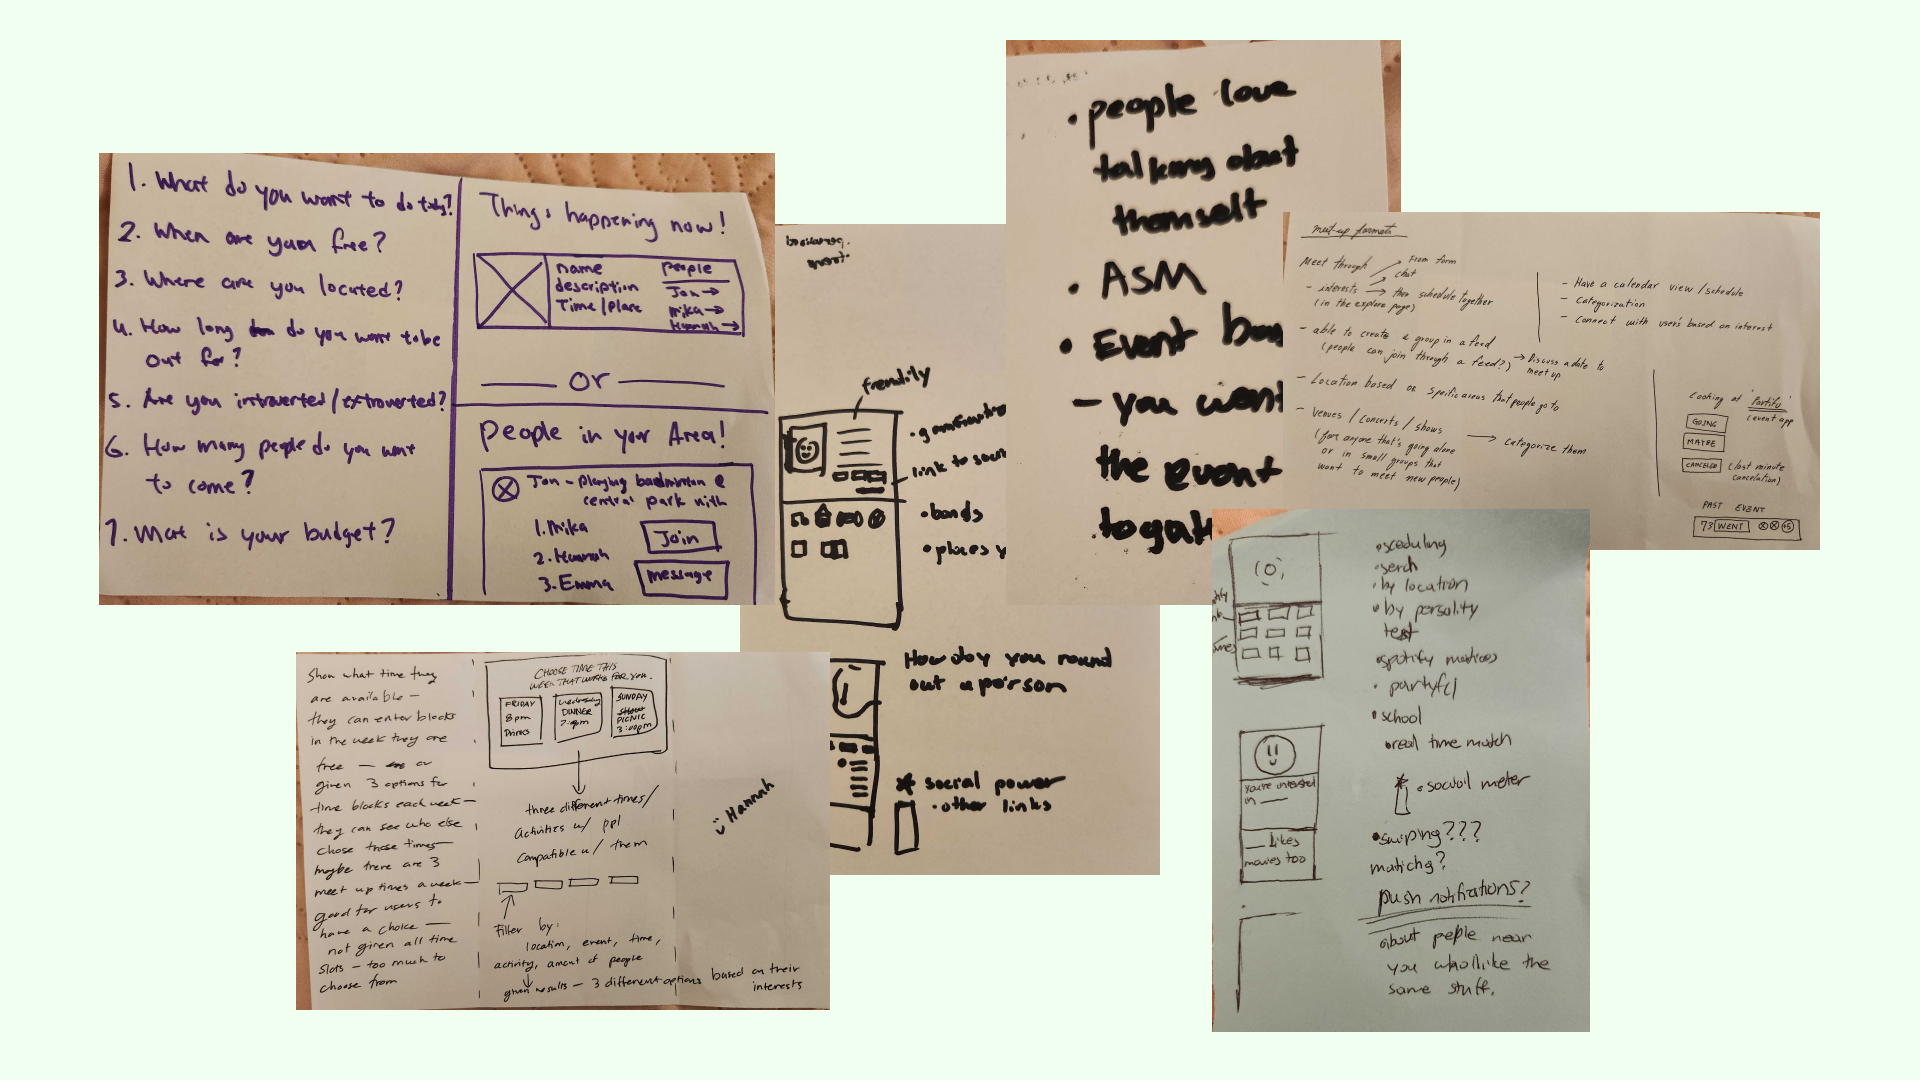 1. What do you want to do today?
2. When are you free?
3. Where are you located?
4. How long do you want to be
out for?
5. Are you introverted/extroverted?
6. How many people do you want
to come?
7. What is your budget?
Things happening now!
name
description
Time/Place
People
Jon →
Mika →
Hannah →
OR
People in your Area!
Jon - playing badminton @
central park with
1. Mika
2. Hannah
3. Emma
Join
message
frendily
link to
• bonds
• places y
How do y you round
out a person
* social power
• other links
• people love
talking about
themself
• ASM
• Event
- you want
the event
meet-up formats
Meet through
From form
chat
- interests → then schedule together
(in the explore page)
- able to create a group in a feed
(people can join through a feed?) → Discuss a date to
meet up
- Location based or specific areas that people go to
- venues / concerts / shows
(for anyone that's going alone
or in small groups that
want to meet new people)
→ categorize them
- Have a calendar view / schedule
- Categorization
- Connect with user's based on interest
Looking at Partiful
(event app
GOING
MAYBE
CANCELED
(last minute
cancelation)
PAST EVENT
73 WENT
+5
Show what time they
are available —
they can enter blocks
in the week they are
free — or
given 3 options for
time blocks each week —
they can see who else
chose those times —
maybe there are 3
meet up times a week —
good for users to
have a choice —
not given all time
slots — too much to
choose from
CHOOSE TIME THIS
WEEK THAT WORKS FOR YOU.
FRIDAY
8pm
Drinks
Wednesday
DINNER
7:00pm
SUNDAY
PICNIC
3:00pm
three different times/
Activities w/ ppl
Compatible w/ them
Filter by:
location, event, time,
activity, amount of people
given results — 3 different options based on their
interests
Hannah
• sceduling
• serch
• by location
• by persality
test
• spotify matices
• partyfcl
• school
• real time match
* • socvoil meter
• swiping???
matichg?
push notifications?
about peple near
you who like the
same stuff.
You're interested
in ___
___ likes
movies too